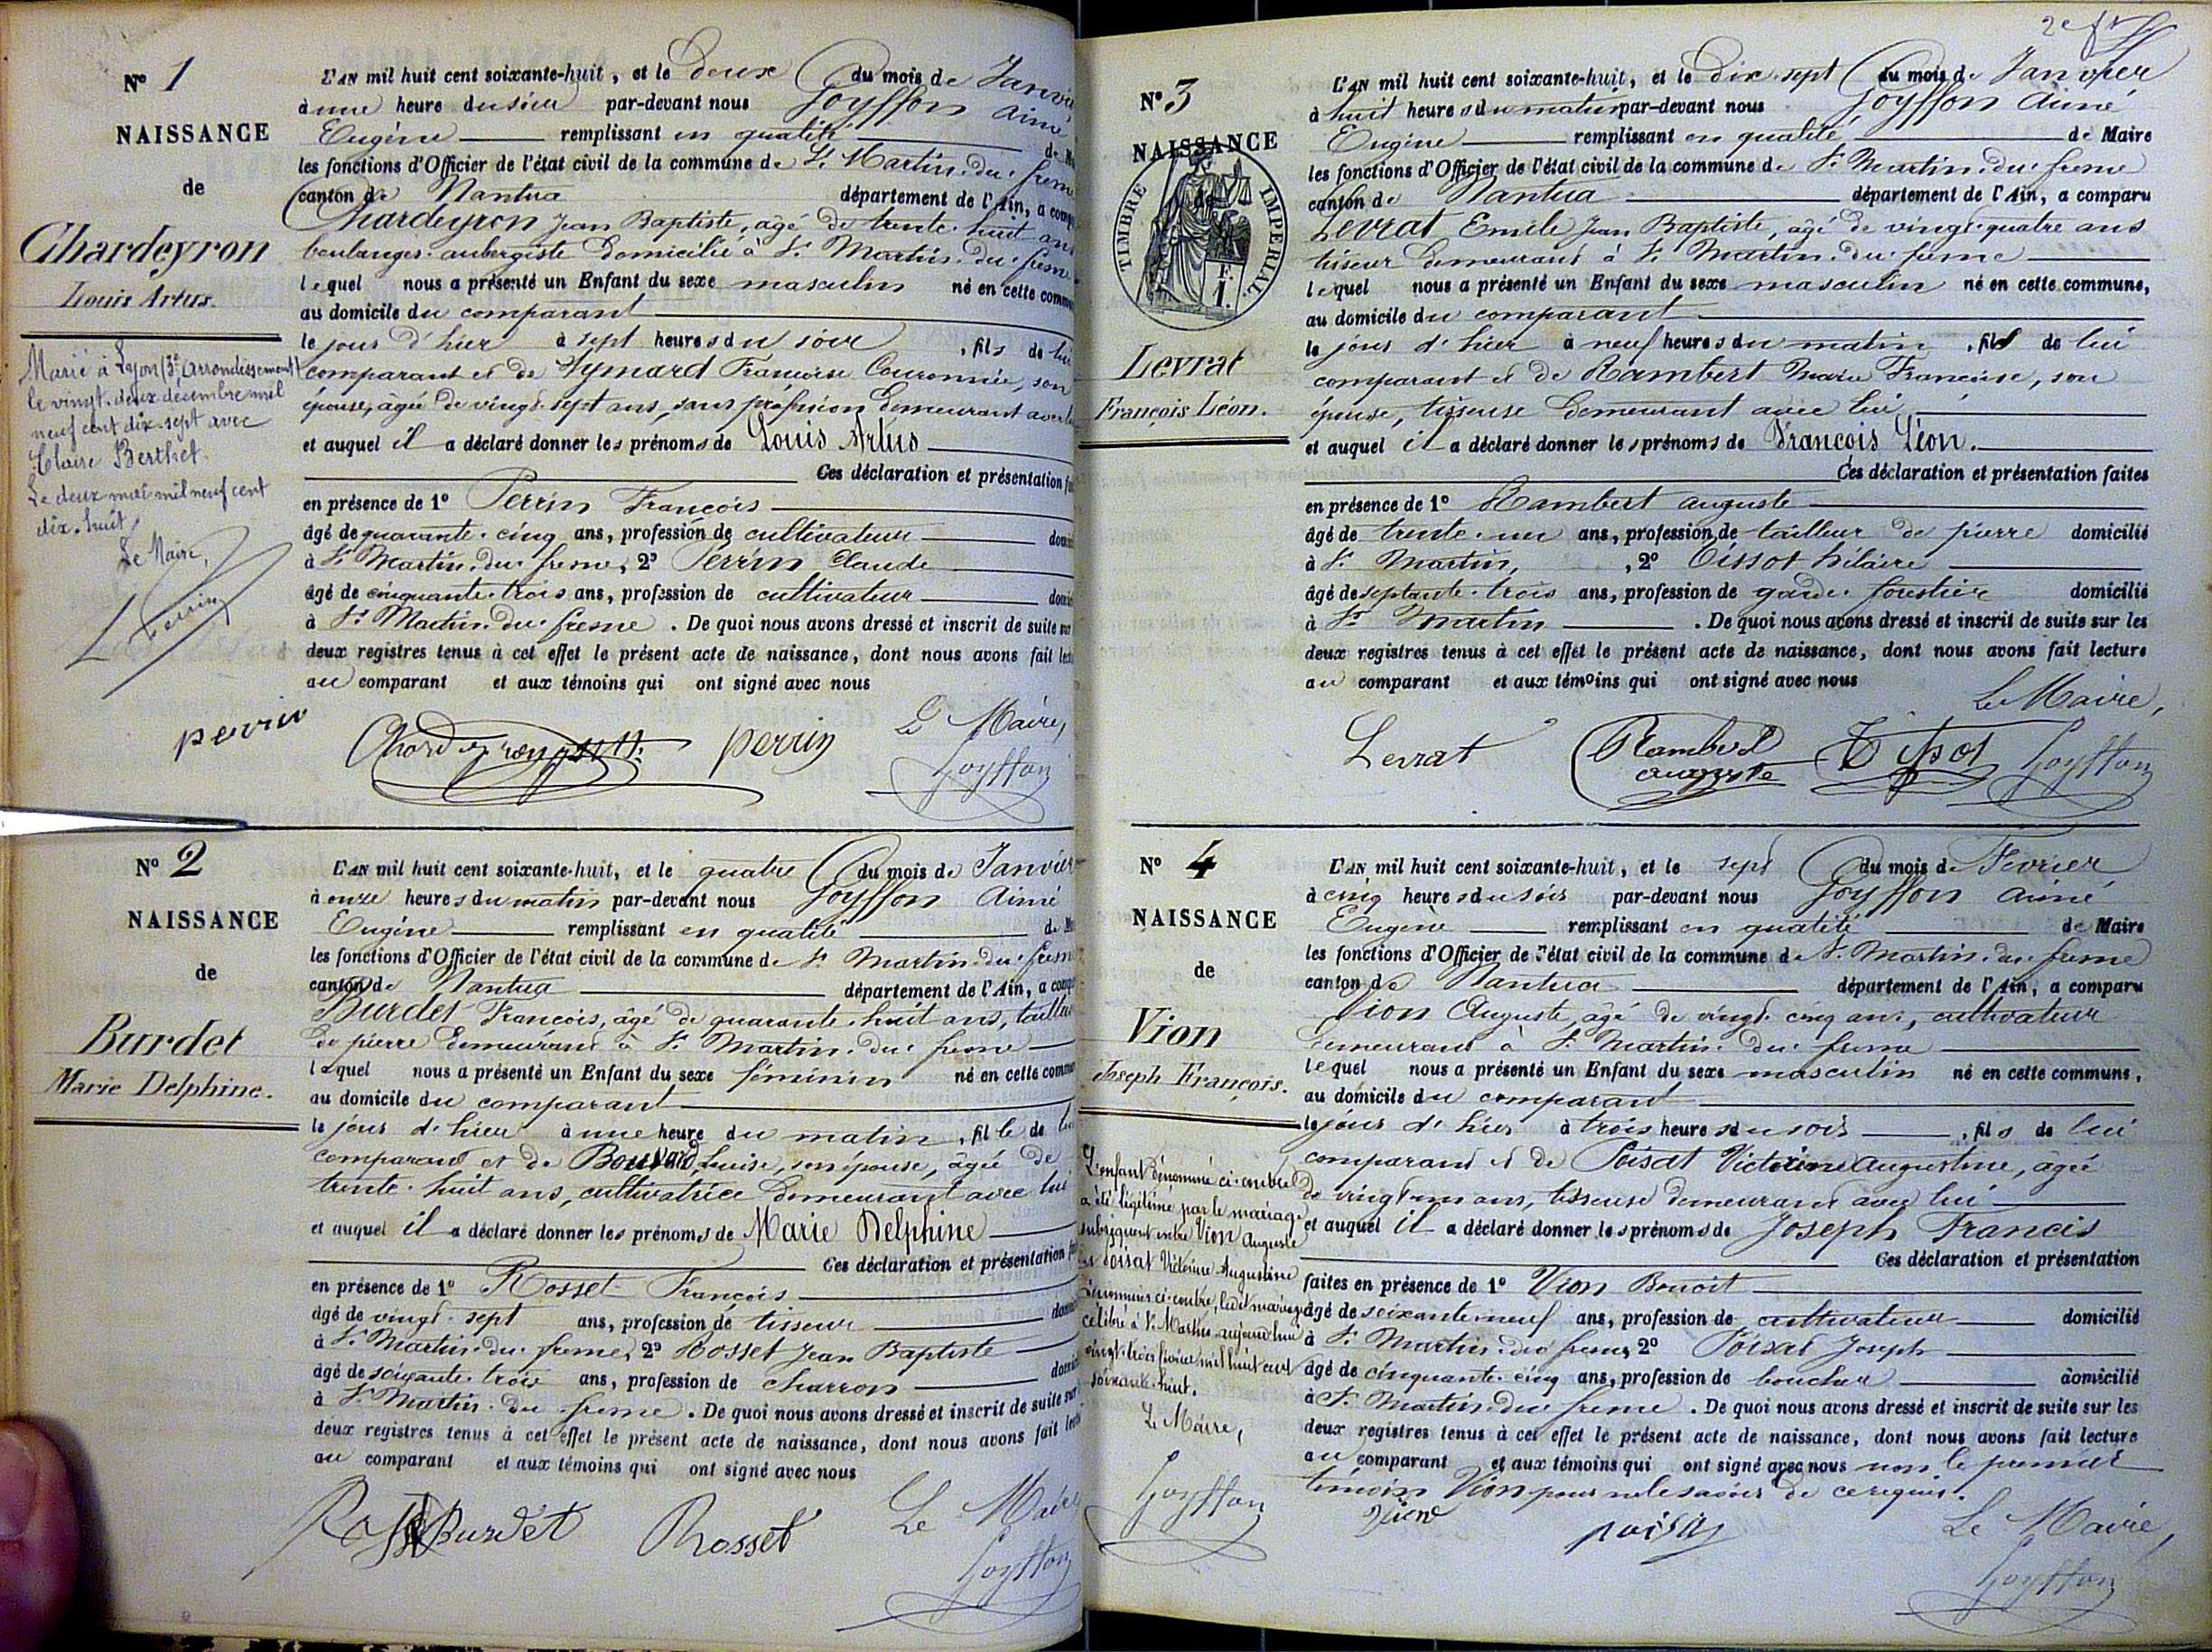 N° 1
NAISSANCE
de
Chardeyron
Louis Artus.
Marié à Lyon (3e arrondissement)
le vingt-deux décembre mil
neuf cent dix-sept avec
Claire Berthet.
Le deux mai mil neuf cent
dix-huit
Le Maire,
Perrin
L'AN mil huit cent soixante-huit, et le deux du mois de Janvier
à une heure du soir par-devant nous Goyffon Aimé
Eugène remplissant en qualité de
les fonctions d'Officier de l'état civil de la commune de St Martin-du-fresne
canton de Nantua département de l'Ain, a comp
Chardeyron Jean Baptiste, agé de trente-huit ans
boulanger-aubergiste domicilié à St Martin-du-fresne
lequel nous a présenté un Enfant du sexe masculin né en cette comm
au domicile du comparant
le jour d'hier à sept heures du soir, fils de lui
comparant et de Aymard Francoise Couronnée, son
épouse, âgée de vingt-sept ans, sans profession demeurant avec lui
et auquel il a déclaré donner les prénoms de Louis Artus
Ces déclaration et présentation
en présence de 1° Perrin François
âgé de quarante-cinq ans, profession de cultivateur
à St Martin-du-fresne, 2° Perrin Claude
âgé de cinquante-trois ans, profession de cultivateur
à St Martin-du-fresne. De quoi nous avons dressé et inscrit de suite sur
deux registres tenus à cet effet le présent acte de naissance, dont nous avons fait
au comparant et aux témoins qui ont signé avec nous
Le Maire,
perrin perrin Goyffon
N° 2
NAISSANCE
de
Burdet
Marie Delphine.
L'AN mil huit cent soixante-huit, et le quatre du mois de Janvier
à onze heures du matin par-devant nous Goyffon Aimé
Eugène remplissant en qualité de
les fonctions d'Officier de l'état civil de la commune de St Martin-du-fresne
canton de Nantua département de l'Ain, a comp
Burdet François, âgé de quarante-huit ans, tailleur
de pierre demeurant à St Martin-du-fresne
lequel nous a présenté un Enfant du sexe féminin né en cette comm
au domicile du comparant
le jour d'hier à une heure du matin, fille de lui
comparant et de Bouvard Louise, son épouse, âgée de
trente-huit ans, cultivatrice demeurant avec lui
et auquel il a déclaré donner les prénoms de Marie Delphine
Ces déclaration et présentation
en présence de 1° Rosset François
âgé de vingt-sept ans, profession de tisseur
à St Martin-du-fresne, 2° Rosset Jean Baptiste
âgé de soixante-trois ans, profession de charron
à St Martin-du-fresne. De quoi nous avons dressé et inscrit de suite sur
deux registres tenus à cet effet le présent acte de naissance, dont nous avons fait
au comparant et aux témoins qui ont signé avec nous
Burdet Rosset Le Maire
Goyffon
N° 3
NAISSANCE
de
TIMBRE IMPERIAL.
Levrat
François Léon.
L'AN mil huit cent soixante-huit, et le dix-sept du mois de Janvier
à huit heures du matin par-devant nous Goyffon Aimé
Eugène remplissant en qualité de Maire
les fonctions d'Officier de l'état civil de la commune de St Martin-du-fresne
canton de Nantua département de l'Ain, a comparu
Levrat Emile Jean Baptiste, agé de vingt-quatre ans
tisseur demeurant à St Martin-du-fresne
lequel nous a présenté un Enfant du sexe masculin né en cette commune,
au domicile du comparant
le jour d'hier à neuf heures du matin, fils de lui
comparant et de Rambert Marie Francoise, son
épouse, tisseuse demeurant avec lui
et auquel il a déclaré donner les prénoms de François Léon.
Ces déclaration et présentation faites
en présence de 1° Rambert auguste
âgé de trente-un ans, profession de tailleur de pierre domicilié
à St Martin, 2° Tissot hilaire
âgé de septante-trois ans, profession de garde-forestier domicilié
à St Martin. De quoi nous avons dressé et inscrit de suite sur les
deux registres tenus à cet effet le présent acte de naissance, dont nous avons fait lecture
au comparant et aux témoins qui ont signé avec nous
Le Maire,
Levrat Rambert auguste Tissot Goyffon
N° 4
NAISSANCE
de
Vion
Joseph François.
L'enfant dénommé ci-contre
a été légitimé par le mariage
subséquent entre Vion Auguste
et Poisat Victorine Augustine
dénommés ci-contre, ledit mariage
célébré à St Martin aujourd'hui
vingt-trois février mil huit cent
soixante-huit.
Le Maire,
Goyffon
L'AN mil huit cent soixante-huit, et le sept du mois de Février
à cinq heures du soir par-devant nous Goyffon Aimé
Eugène remplissant en qualité de Maire
les fonctions d'Officier de l'état civil de la commune de St Martin-du-fresne
canton de Nantua département de l'Ain, a comparu
Vion Auguste, agé de vingt-cinq ans, cultivateur
demeurant à St Martin-du-fresne
lequel nous a présenté un Enfant du sexe masculin né en cette commune,
au domicile du comparant
le jour d'hier à trois heures du soir, fils de lui
comparant et de Poisat Victorine Augustine, âgée
de vingt-un ans, tisseuse demeurant avec lui
et auquel il a déclaré donner les prénoms de Joseph Francis
Ces déclaration et présentation
faites en présence de 1° Vion Benoit
âgé de soixante-neuf ans, profession de cultivateur domicilié
à St Martin-du-fresne, 2° Poisat Joseph
âgé de cinquante-cinq ans, profession de boucher domicilié
à St Martin-du-fresne. De quoi nous avons dressé et inscrit de suite sur les
deux registres tenus à cet effet le présent acte de naissance, dont nous avons fait lecture
au comparant et aux témoins qui ont signé avec nous non le premier
témoin Vion pour ne le savoir de ce requis.
Vion poisat Le Maire,
Goyffon